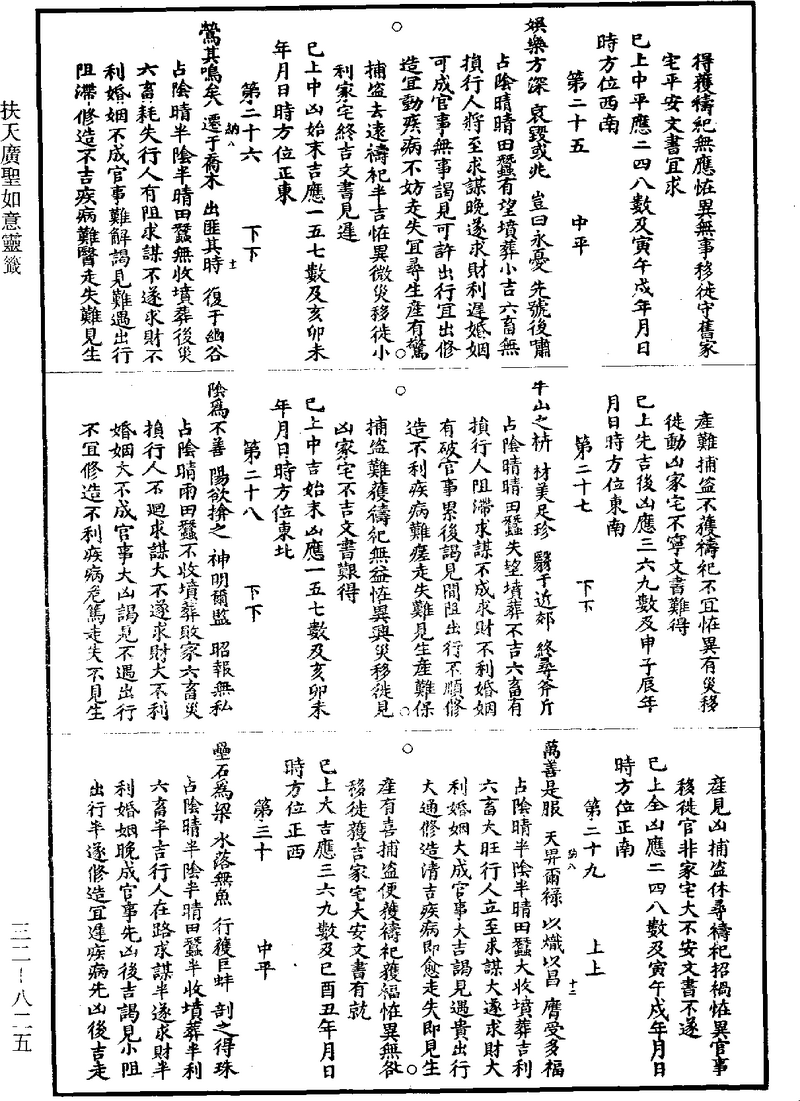 扶天廣聖如意靈籤
得獲禱祀無應恠異無事移徙守舊家
宅平安文書冝求
已上中平應二四八數及寅午戌年月日
時方位西南
第二十五　中平
娛樂方深　哀毀或兆　豈曰永憂　先號後嘯
占陰晴晴田蠶有望墳葬小吉六畜無
損行人將至求謀晚遂求財利遲婚姻
可成官事無事謁見可許出行冝出修
造冝動疾病不妨走失冝尋生產有驚
捕盜去遠禱祀半吉恠異微災移徙小
利家宅終吉文書見遲
已上中凶始末吉應一五七數及亥卯未
年月日時方位正東
第二十六　下下
鶯其鳴矣　遷于喬木　出匪其時　復于幽谷
占陰晴半陰半晴田蠶無收墳葬後災
六畜耗失行人有阻求謀不遂求財不
利婚姻不成官事難解謁見難遇出行
阻滯修造不吉疾病難醫走失難見生
產難捕盜不獲禱祀不冝恠異有災移
徙動凶家宅不寧文書難得
已上先吉後凶應三六九數及申子辰年
月日時方位東南
第二十七　下下
牛山之枿　材美足珍　騁于近郊　終尋斧斤
占陰晴晴田蠶失望墳葬不吉六畜有
損行人阻滯求謀不成求財不利婚姻
有破官事累後謁見間阻出行不順修
造不利疾病難瘥走失難見生產難保
捕盜難獲禱祀無益恠異興災移徙見
凶家宅不吉文書艱得
已上中吉始末凶應一五七數及亥卯未
年月日時方位東北
第二十八　下下
陰爲不善　陽欲揜之　神明爾監　昭報無私
占陰晴雨田蠶不收墳葬敗家六畜災
損行人不迴求謀大不遂求財大不利
婚姻大不成官事大凶謁見不遇出行
不冝修造不利疾病危篤走失不見生
產見凶捕盜休尋禱祀招禍恠異官事
移徙官非家宅大不安文書不遂
已上全凶應二四八數及寅午戌年月日
時方位正南
第二十九　上上
萬善是服　天畀爾祿　以熾以昌　膺受多福
占陰晴半陰半晴田蠶大收墳葬吉利
六畜大旺行人立至求謀大遂求財大
利婚姻大成官事大吉謁見遇貴出行
大通修造清吉疾病即愈走失即見生
產有喜捕盜便獲禱祀獲福恠異無咎
移徙獲吉家宅大安文書有就
已上大吉應三六九數及巳酉丑年月日
時方位正西
第三十　中平
壘石爲梁　水落無魚　行獲巨蚌　剖之得珠
占陰晴半陰半晴田蠶半收墳葬半利
六畜半吉行人在路求謀半遂求財半
利婚姻晚成官事先凶後吉謁見小阻
出行半遂修造冝遲疾病先凶後吉走
三二－八二五